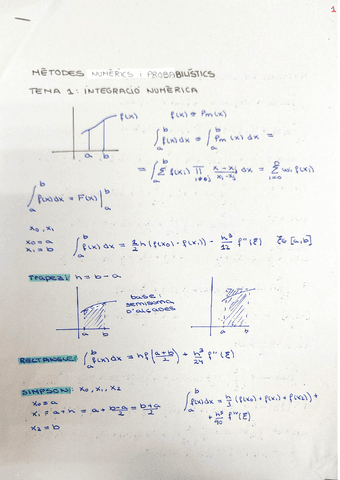 1
MÈTODES NUMÈRICS I PROBABILÍSTICS
TEMA 1: INTEGRACIÓ NUMÈRICA
f(x)
a b
f(x) ≈ Pm(x)
∫_a^b f(x) dx ≈ ∫_a^b Pm(x) dx =
= ∫_a^b Σ f(xi) ∏_{i≠j} (x - xj)/(xi - xj) dx = Σ_{i=0}^n wi f(xi)
∫_a^b f(x) dx = F(x)|_a^b
x0, x1
x0 = a
x1 = b
∫_a^b f(x) dx = h/2 (f(x0) - f(x1)) - h³/12 f''(ξ) ξ∈[a,b]
Trapezi: h = b - a
base:
semisuma
d'alçades
a b
a b
RECTANGLE: ∫_a^b f(x) dx = hf((a+b)/2) + h³/24 f''(ξ)
SIMPSON: x0, x1, x2
x0 = a
x1 = a+h = a + (b-a)/2 = (b+a)/2
x2 = b
∫_a^b f(x) dx = h/3 (f(x0) + f(x1) + f(x2)) +
+ h⁵/90 f^IV(ξ)